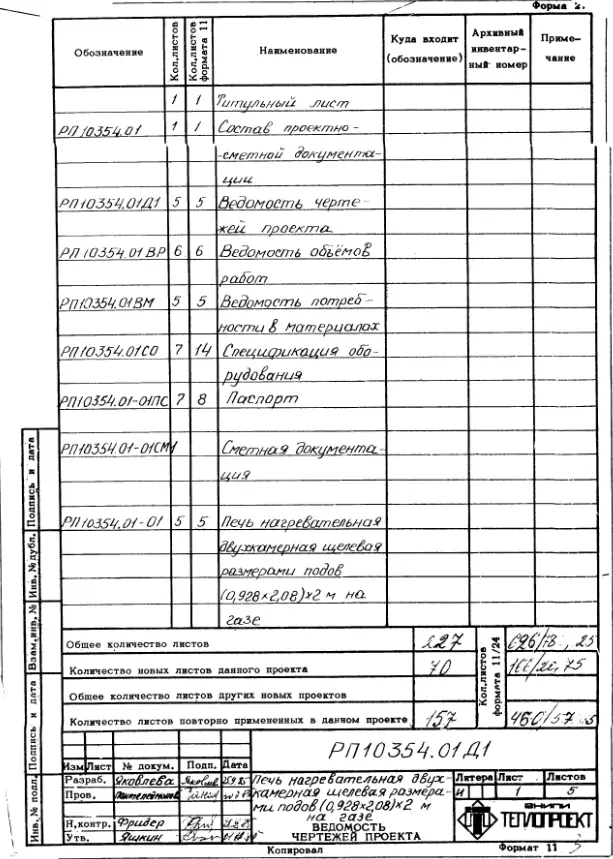 Форма 2.
Обозначение
Кол.листов
Кол.листов формата 11
Наименование
Куда входит (обозначение)
Архивный инвентарный номер
Примечание
1 1 Титульный лист
РП10354.01 1 1 Состав проектно-
-сметной документа-
ции
РП10354.01Д1 5 5 Ведомость черте-
жей проекта
РП10354.01ВР 6 6 Ведомость объёмов
работ
РП10354.01ВМ 5 5 Ведомость потреб-
ности в материалах
РП10354.01СО 7 14 Спецификация обо-
рудования
РП10354.01-01ПС 7 8 Паспорт
РП10354.01-01СМ Сметная документа-
ция
РП10354.01-01 5 5 Печь нагревательная
двухкамерная щелевая
размерами подов
(0,928×2,08)×2 м на
газе
Общее количество листов 227
Количество новых листов данного проекта 70
Общее количество листов других новых проектов
Количество листов повторно примененных в данном проекте 157
Кол.листов формата 11/24
Подпись и дата
Инв.№ дубл.
Взам.инв.№
Подпись и дата
Инв.№ подл.
РП10354.01Д1
Изм Лист № докум. Подп. Дата
Разраб. Яковлева
Пров.
Н.контр. Фридер
Утв. Яшкин
Печь нагревательная двух-
камерная щелевая размера-
ми подов (0,928×2,08)×2 м
на газе
ВЕДОМОСТЬ
ЧЕРТЕЖЕЙ ПРОЕКТА
Литера Лист Листов
И 1 5
ВНИПИ
ТЕПЛОПРОЕКТ
Копировал
Формат 11